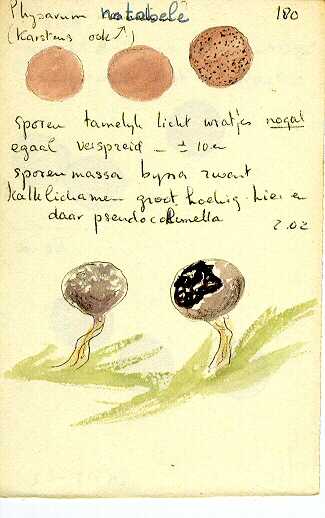 Physarum notabele 180
(Karstens ook ↗)
sporen tamelijk licht wratjes nogal
egaal verspreid – ± 10 u
sporenmassa bijna zwart
Kalklichamen groot, hoekig. hier en
daar pseudocolumella
2.02